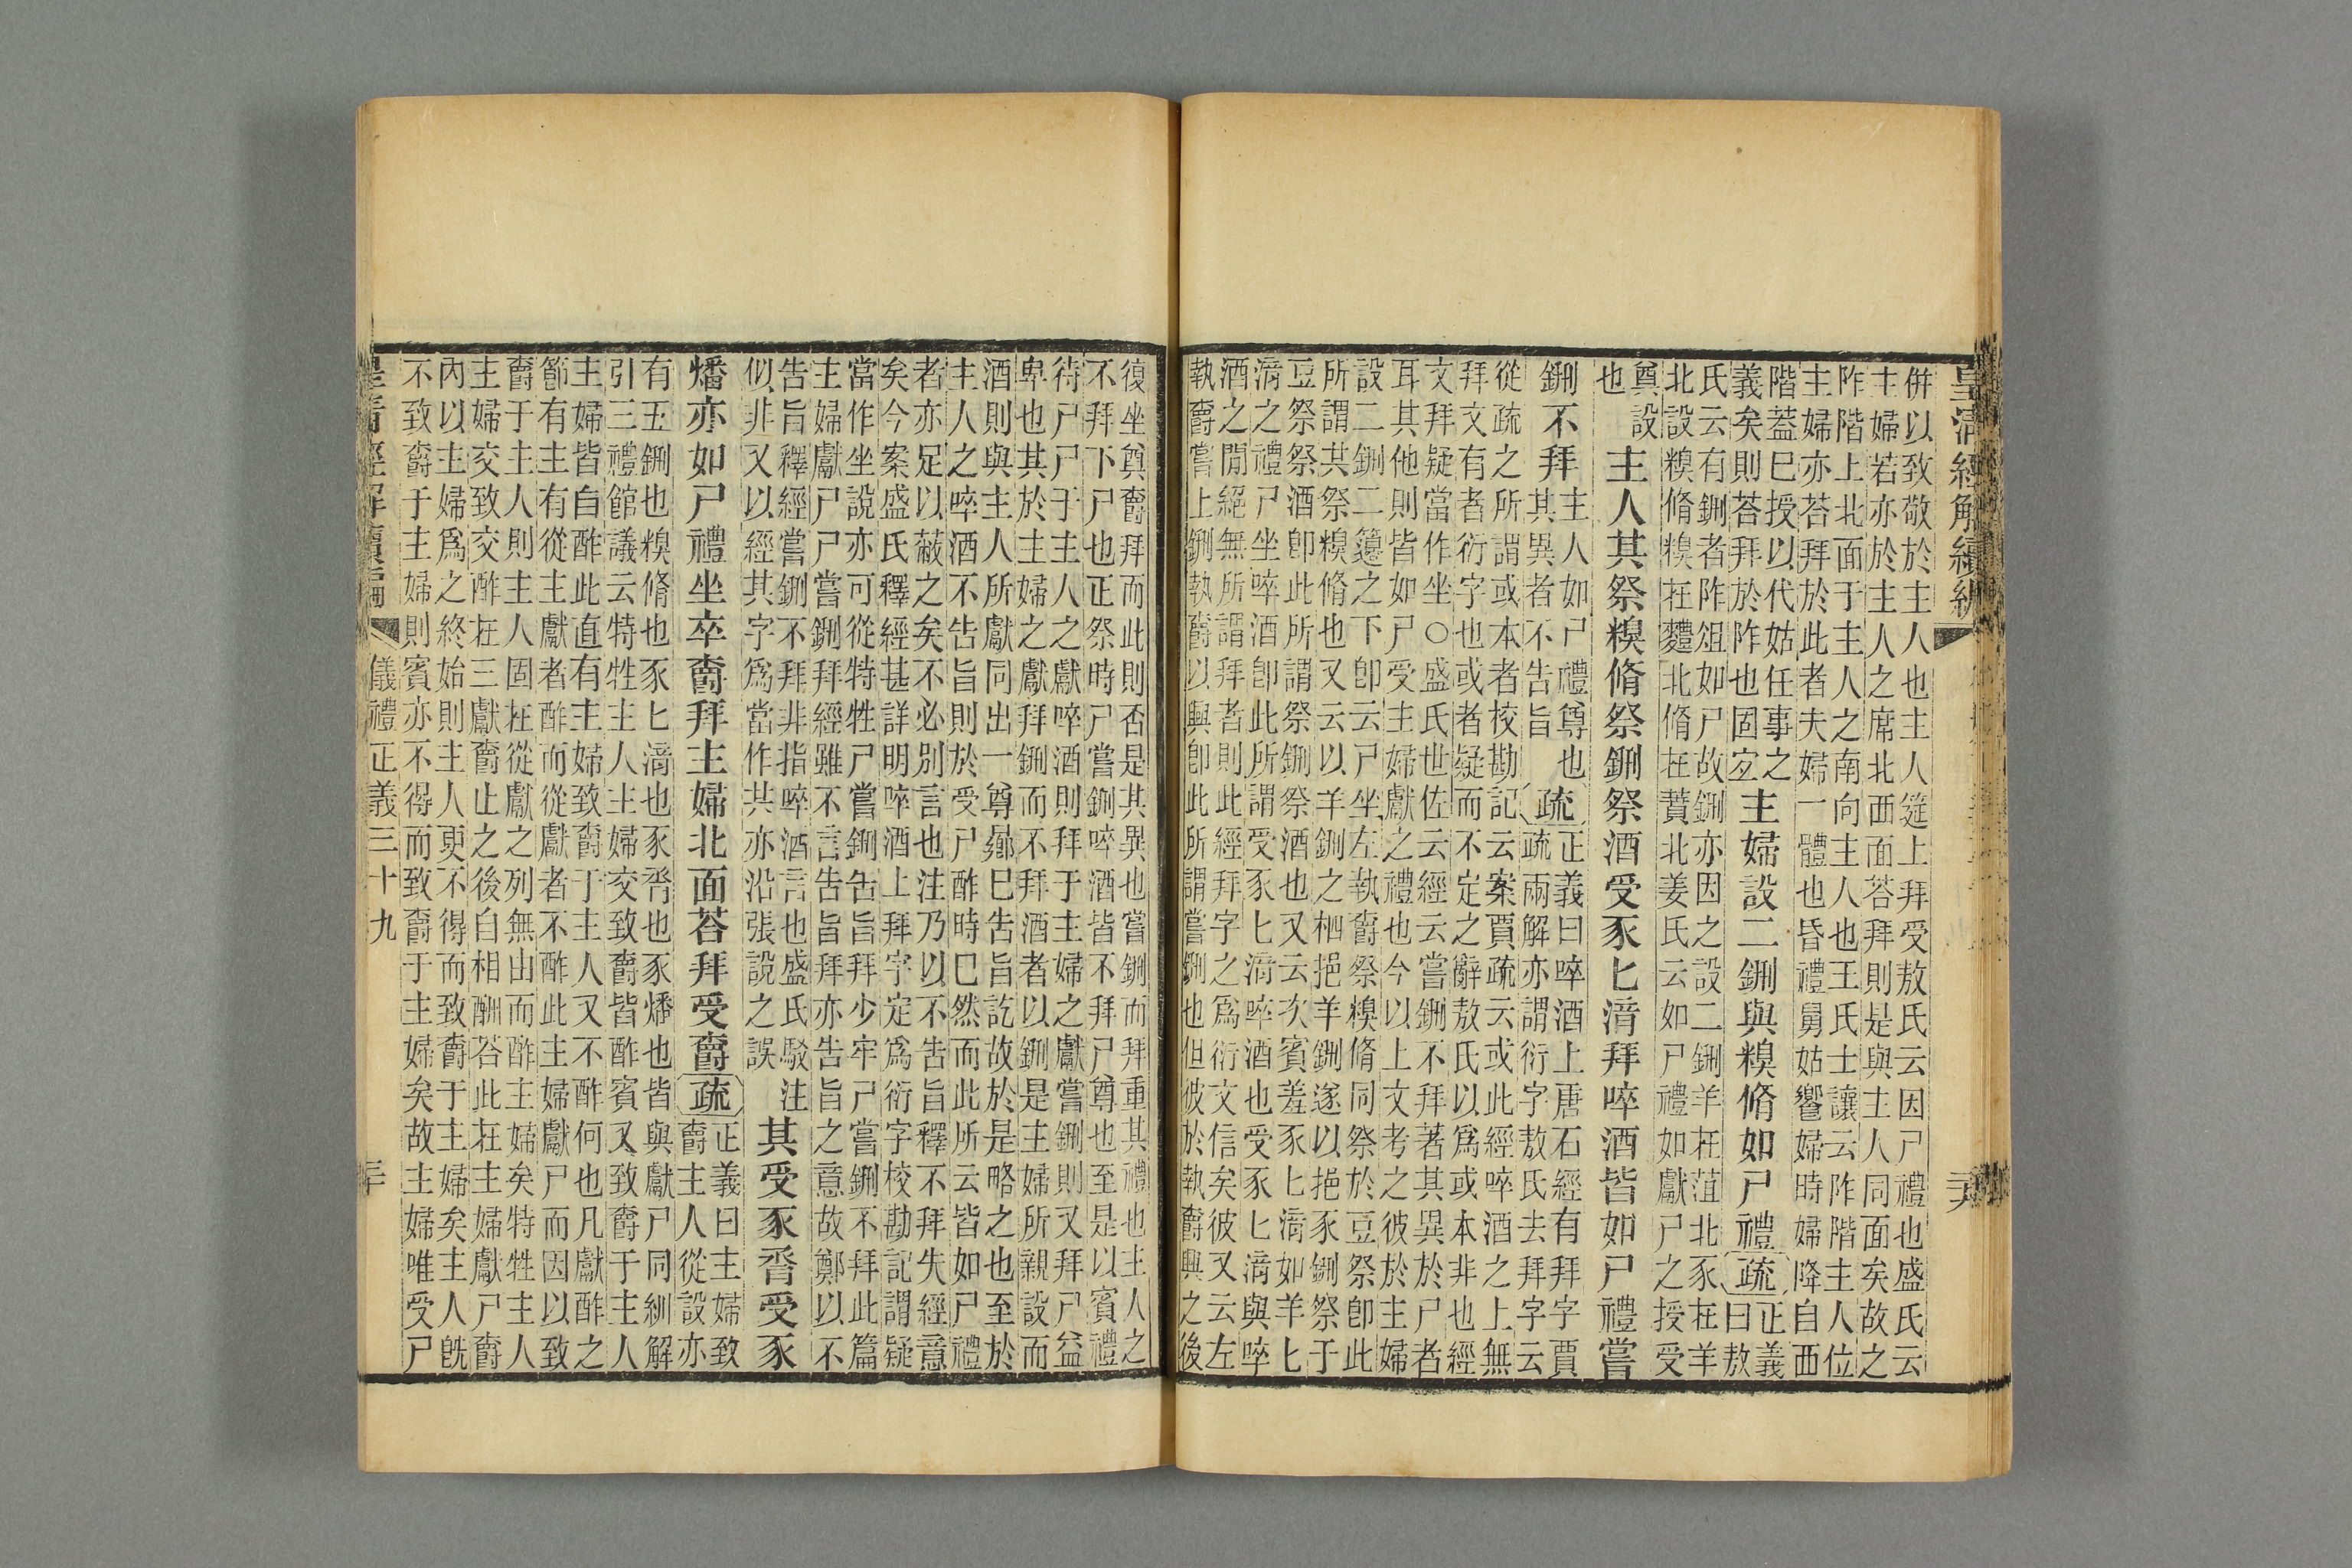 皇清經解續編
併以致敬於主人也主人筵上拜受敖氏云因尸禮也盛氏云
主婦若亦於主人之席北西面荅拜則是與主人同面矣故之
阼階上北面于主人之南向主人也王氏士讓云阼階主人位
主婦亦荅拜於此者夫婦一體也昏禮舅姑饗婦時婦降自西
階蓋已授以代姑任事之
義矣則荅拜於阼也固宐
主婦設二鉶與糗脩如尸禮疏
正義
曰敖
氏云有鉶者阼俎如尸故鉶亦因之設二鉶羊在菹北豕在羊
北設糗脩糗在麷北脩在蕡北姜氏云如尸禮如獻尸之授受
奠設
也
主人其祭糗脩祭鉶祭酒受豕匕湇拜啐酒皆如尸禮嘗
鉶不拜
主人如尸禮尊也
其異者不告旨
疏
正義曰啐酒上唐石經有拜字賈
疏兩解亦謂衍字敖氏去拜字云
從疏之所謂或本者校勘記云案賈疏云或此經啐酒之上無
拜文有者衍字也或者疑而不定之辭敖氏以爲或本非也經
文拜疑當作坐○盛氏世佐云經云嘗鉶不拜著其異於尸者
耳其他則皆如尸受主婦獻之禮也今以上文考之彼於主婦
設二鉶二籩之下卽云尸坐左執爵祭糗脩同祭於豆祭卽此
所謂其祭糗脩也又云以羊鉶之柶挹羊鉶遂以挹豕鉶祭于
豆祭祭酒卽此所謂祭鉶祭酒也又云次賓羞豕匕湇如羊匕
湇之禮尸坐啐酒卽此所謂受豕匕湇啐酒也受豕匕湇與啐
酒之閒絕無所謂拜者則此經拜字之爲衍文信矣彼又云左
執爵嘗上鉶執爵以興卽此所謂嘗鉶也但彼於執爵興之後
復坐奠爵拜而此則否是其異也嘗鉶而拜重其禮也主人之
不拜下尸也正祭時尸嘗鉶啐酒皆不拜尸尊也至是以賓禮
待尸尸于主人之獻啐酒則拜于主婦之獻嘗鉶則又拜尸益
卑也其於主婦之獻拜鉶而不拜酒者以鉶是主婦所親設而
酒則與主人所獻同出一尊曏已告旨訖故於是略之也至於
主人之啐酒不告旨則於受尸酢時已然而此所云皆如尸禮
者亦足以蔽之矣不必別言也注乃以不告旨釋不拜失經意
矣今案盛氏釋經甚詳明啐酒上拜字定爲衍字校勘記謂疑
當作坐說亦可從特牲尸嘗鉶告旨拜少牢尸嘗鉶不拜此篇
主婦獻尸尸嘗鉶拜經雖不言告旨拜亦告旨之意故鄭以不
告旨釋經嘗鉶不拜非指啐酒言也盛氏駁注
似非又以經其字爲當作共亦沿張說之誤
其受豕脀受豕
燔亦如尸禮坐卒爵拜主婦北面荅拜受爵疏
正義曰主婦致
爵主人從設亦
有五鉶也糗脩也豕匕湇也豕脀也豕燔也皆與獻尸同紃解
引三禮館議云特牲主人主婦交致爵皆酢賓又致爵于主人
主婦皆自酢此直有主婦致爵于主人又不酢何也凡獻酢之
節有主有從主獻者酢而從獻者不酢此主婦獻尸而因以致
爵于主人則主人固在從獻之列無由而酢主婦矣特牲主人
主婦交致交酢在三獻爵止之後自相酬荅此在主婦獻尸爵
內以主婦爲之終始則主人更不得而致爵于主婦矣主人旣
不致爵于主婦則賓亦不得而致爵于主婦矣故主婦唯受尸
皇清經解續編 儀禮正義三十九 三十